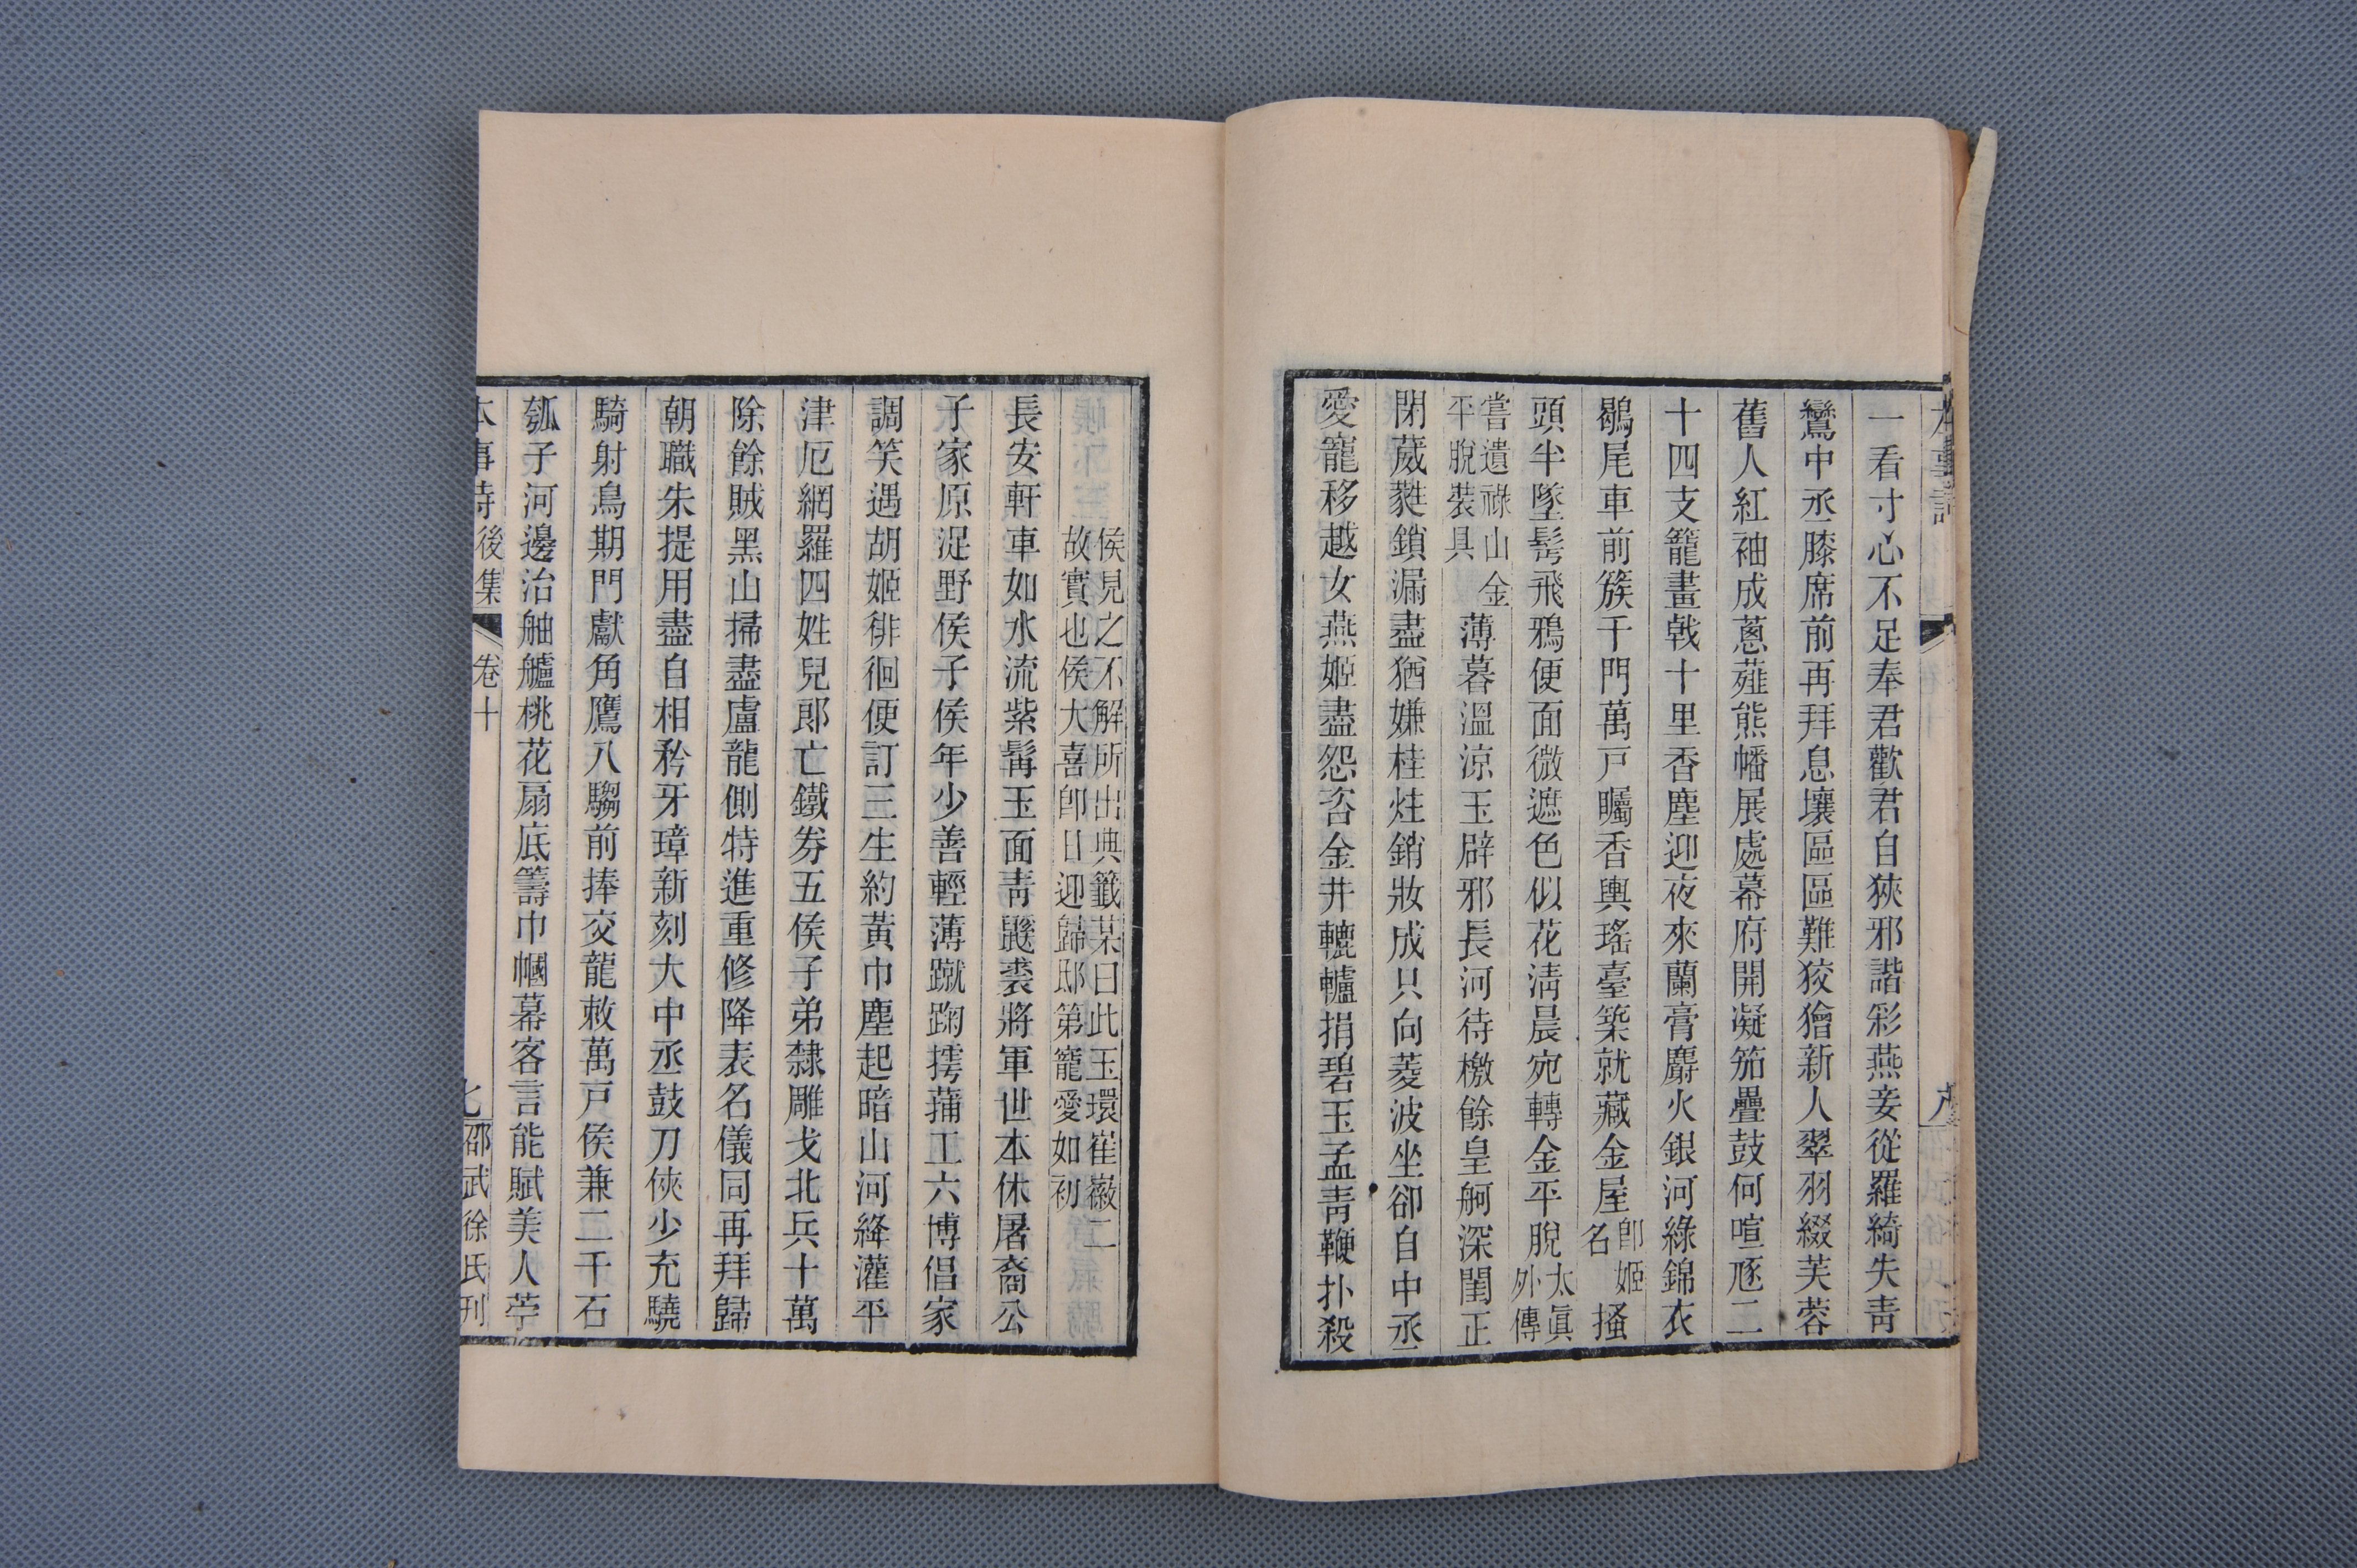 一看寸心不足奉君歡君自狹邪諧彩燕妾從羅綺失青
鸞中丞膝席前再拜息壤區區難狡獪新人翠羽綴芙蓉
舊人紅袖成蔥薤熊幡展處幕府開凝笳疊鼓何喧豗二
十四支籠畫戟十里香塵迎夜來蘭膏麝火銀河綠錦衣
鶡尾車前簇千門萬戸矚香輿瑤臺築就藏金屋卽姬名搔
頭半墜髩飛鴉便面微遮色似花淸晨宛轉金平脫太眞外傳
嘗遺祿山金平脫裝具薄暮溫涼玉辟邪長河待檄餘皇舸深閨正
閉葳蕤鎖漏盡猶嫌桂炷銷妝成只向菱波坐卻自中丞
愛寵移越女燕姬盡怨咨金井轆轤捐碧玉孟靑鞭扑殺
侯見之不解所出典籤某曰此玉環崔徽二
故實也侯大喜卽日迎歸邸第寵愛如初
長安軒車如水流紫髯玉面靑鼲裘將軍世本休屠裔公
子家原浞野侯子侯年少善輕薄蹴踘摴蒱工六博倡家
調笑遇胡姬徘徊便訂三生約黃巾塵起暗山河絳灌平
津厄網羅四姓兒郞亡鐵券五侯子弟隸雕戈北兵十萬
除餘賊黑山掃盡盧龍側特進重修降表名儀同再拜歸
朝職朱提用盡自相矜牙璋新刻大中丞鼓刀俠少充驍
騎射鳥期門獻角鷹八騶前捧交龍敕萬戸侯兼二千石
瓠子河邊治舳艫桃花扇底籌巾幗幕客言能賦美人苧
本事詩後集 卷十 七 邵武徐氏刊